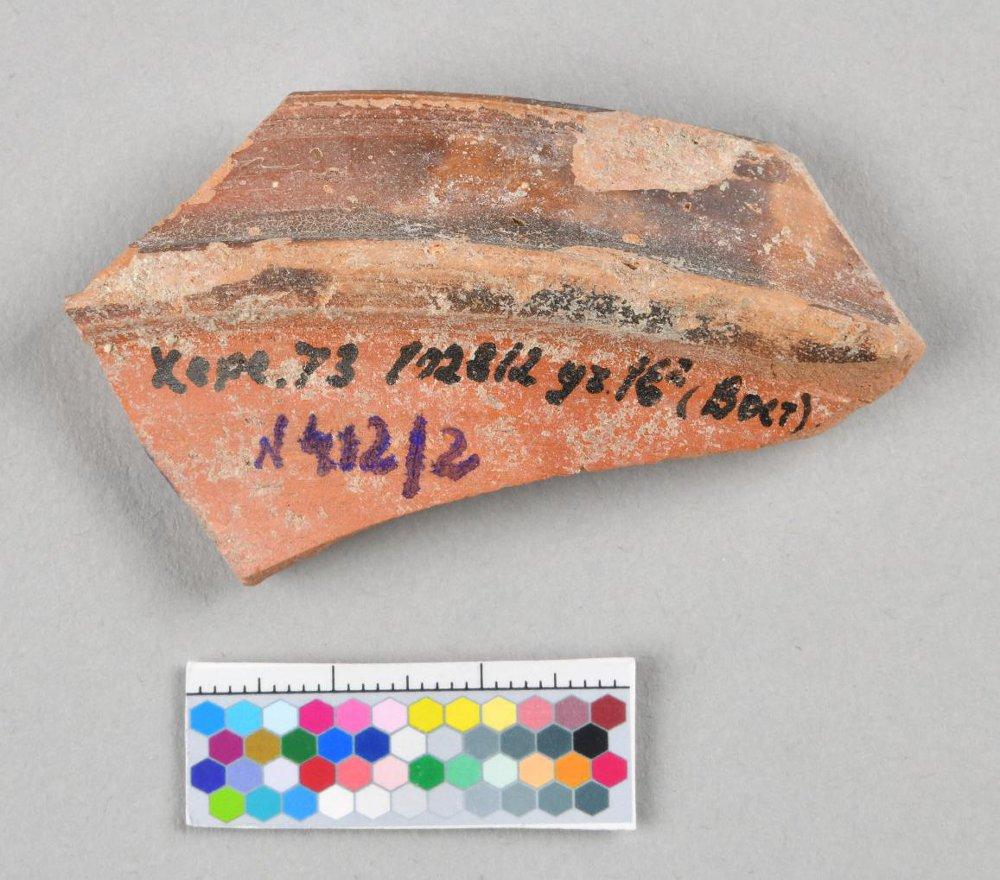 Херс. 73 п 28/12 уч. 16² (Вост).
N 412/2